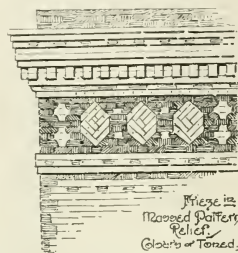 Frieze in
Massed Pattern
Relief.
Colours or Toned.